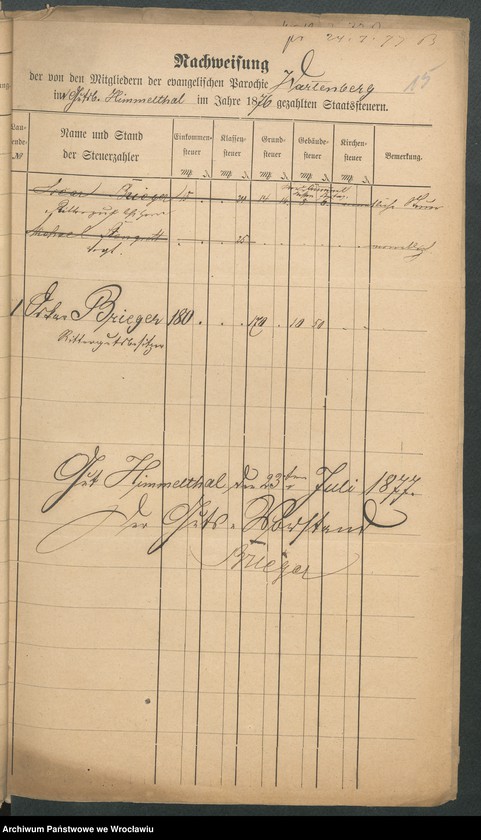 pr 24.7.77 B
15
Nachweisung
der von den Mitgliedern der evangelischen Parochie Wartenberg
im Gutsb. Himmelthal im Jahre 1876 gezahlten Staatssteuern.
Lau-
fende
№
Name und Stand
der Steuerzahler
Einkommen-
steuer
Klassen-
steuer
Grund-
steuer
Gebäude-
steuer
Kirchen-
steuer
Bemerkung.
Brieger 15
Rittergutsbesitzer
25
Vogt.
1 Oskar Brieger 180 . . . 170 . 10 50 . .
Rittergutsbesitzer
Gut Himmelthal, den 23ten Juli 1877.
Der Guts-Vorstand
Brieger
Archiwum Państwowe we Wrocławiu